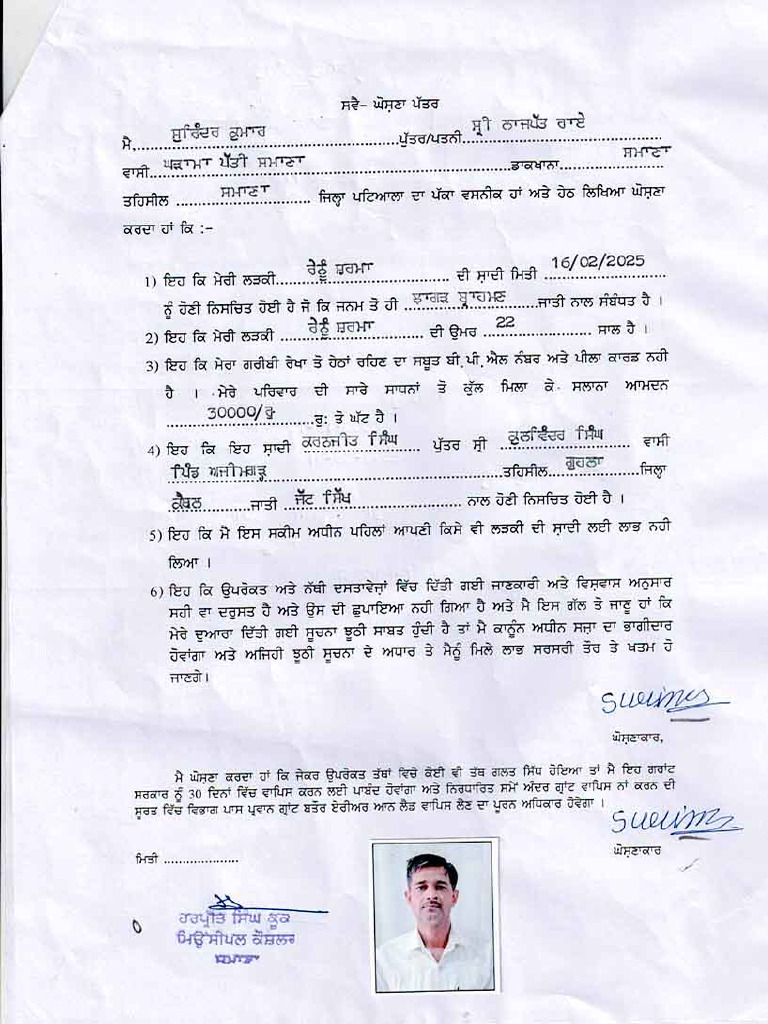 ਸਵੈ- ਘੋਸ਼ਣਾ ਪੱਤਰ
ਮੈ ਸੁਰਿੰਦਰ ਕੁਮਾਰ ਪੁੱਤਰ/ਪਤਨੀ ਸ਼੍ਰੀ ਲਾਜਪੱਤ ਰਾਏ
ਵਾਸੀ ਘੜਾਮਾ ਪੱਤੀ ਸਮਾਣਾ ਡਾਕਖਾਨਾ ਸਮਾਣਾ
ਤਹਿਸੀਲ ਸਮਾਣਾ ਜਿਲ੍ਹਾ ਪਟਿਆਲਾ ਦਾ ਪੱਕਾ ਵਸਨੀਕ ਹਾਂ ਅਤੇ ਹੇਠ ਲਿਖਿਆ ਘੋਸ਼ਣਾ
ਕਰਦਾ ਹਾਂ ਕਿ :-
1) ਇਹ ਕਿ ਮੇਰੀ ਲੜਕੀ ਰੇਨੂੰ ਸ਼ਰਮਾ ਦੀ ਸ਼ਾਦੀ ਮਿਤੀ 16/02/2025
ਨੂੰ ਹੋਣੀ ਨਿਸਚਿਤ ਹੋਈ ਹੈ ਜੋ ਕਿ ਜਨਮ ਤੋ ਹੀ ਬ੍ਰਾਹਮਣ ਜਾਤੀ ਨਾਲ ਸੰਬੰਧਤ ਹੈ ।
2) ਇਹ ਕਿ ਮੇਰੀ ਲੜਕੀ ਰੇਨੂੰ ਸ਼ਰਮਾ ਦੀ ਉਮਰ 22 ਸਾਲ ਹੈ ।
3) ਇਹ ਕਿ ਮੇਰਾ ਗਰੀਬੀ ਰੇਖਾ ਤੋ ਹੇਠਾਂ ਰਹਿਣ ਦਾ ਸਬੂਤ ਬੀ.ਪੀ.ਐਲ ਨੰਬਰ ਅਤੇ ਪੀਲਾ ਕਾਰਡ ਨਹੀ
ਹੈ । ਮੇਰੇ ਪਰਿਵਾਰ ਦੀ ਸਾਰੇ ਸਾਧਨਾਂ ਤੋ ਕੁੱਲ ਮਿਲਾ ਕੇ ਸਲਾਨਾ ਆਮਦਨ
30000/ਰੁ ਰੁ: ਤੋ ਘੱਟ ਹੈ ।
4) ਇਹ ਕਿ ਇਹ ਸ਼ਾਦੀ ਕਰਨਜੀਤ ਸਿੰਘ ਪੁੱਤਰ ਸ਼੍ਰੀ ਕੁਲਵਿੰਦਰ ਸਿੰਘ ਵਾਸੀ
ਪਿੰਡ ਅਜੀਮਗੜ੍ਹ ਤਹਿਸੀਲ ਗੁਹਲਾ ਜਿਲ੍ਹਾ
ਕੈਥਲ ਜਾਤੀ ਜੱਟ ਸਿੱਖ ਨਾਲ ਹੋਣੀ ਨਿਸਚਿਤ ਹੋਈ ਹੈ ।
5) ਇਹ ਕਿ ਮੈ ਇਸ ਸਕੀਮ ਅਧੀਨ ਪਹਿਲਾਂ ਆਪਣੀ ਕਿਸੇ ਵੀ ਲੜਕੀ ਦੀ ਸ਼ਾਦੀ ਲਈ ਲਾਭ ਨਹੀ
ਲਿਆ ।
6) ਇਹ ਕਿ ਉਪਰੋਕਤ ਅਤੇ ਨੱਥੀ ਦਸਤਾਵੇਜ਼ਾਂ ਵਿੱਚ ਦਿੱਤੀ ਗਈ ਜਾਣਕਾਰੀ ਅਤੇ ਵਿਸ਼ਵਾਸ ਅਨੁਸਾਰ
ਸਹੀ ਵਾ ਦਰੁਸਤ ਹੈ ਅਤੇ ਉਸ ਦੀ ਛੁਪਾਇਆ ਨਹੀ ਗਿਆ ਹੈ ਅਤੇ ਮੈ ਇਸ ਗੱਲ ਤੋ ਜਾਣੂ ਹਾਂ ਕਿ
ਮੇਰੇ ਦੁਆਰਾ ਦਿੱਤੀ ਗਈ ਸੂਚਨਾ ਝੂਠੀ ਸਾਬਤ ਹੁੰਦੀ ਹੈ ਤਾਂ ਮੈ ਕਾਨੂੰਨ ਅਧੀਨ ਸਜ਼ਾ ਦਾ ਭਾਗੀਦਾਰ
ਹੋਵਾਂਗਾ ਅਤੇ ਅਜਿਹੀ ਝੂਠੀ ਸੂਚਨਾ ਦੇ ਅਧਾਰ ਤੇ ਮੈਨੂੰ ਮਿਲੇ ਲਾਭ ਸਰਸਰੀ ਤੌਰ ਤੇ ਖਤਮ ਹੋ
ਜਾਣਗੇ।
ਘੋਸ਼ਣਾਕਾਰ,
ਮੈ ਘੋਸ਼ਣਾ ਕਰਦਾ ਹਾਂ ਕਿ ਜੇਕਰ ਉਪਰੋਕਤ ਤੱਥਾਂ ਵਿਚੇ ਕੋਈ ਵੀ ਤੱਥ ਗਲਤ ਸਿੱਧ ਹੋਇਆ ਤਾਂ ਮੈ ਇਹ ਗਰਾਂਟ
ਸਰਕਾਰ ਨੂੰ 30 ਦਿਨਾਂ ਵਿੱਚ ਵਾਪਿਸ ਕਰਨ ਲਈ ਪਾਬੰਦ ਹੋਵਾਂਗਾ ਅਤੇ ਨਿਰਧਾਰਿਤ ਸਮੇਂ ਅੰਦਰ ਗ੍ਰਾਂਟ ਵਾਪਿਸ ਨਾਂ ਕਰਨ ਦੀ
ਸੂਰਤ ਵਿੱਚ ਵਿਭਾਗ ਪਾਸ ਪ੍ਰਵਾਨ ਗ੍ਰਾਂਟ ਬਤੌਰ ਏਰੀਅਰ ਆਨ ਲੈਡ ਵਾਪਿਸ ਲੈਣ ਦਾ ਪੂਰਨ ਅਧਿਕਾਰ ਹੋਵੇਗਾ ।
ਘੋਸ਼ਣਾਕਾਰ
ਮਿਤੀ
ਹਰਪ੍ਰੀਤ ਸਿੰਘ ਕੂਕ
ਮਿਉਂਸੀਪਲ ਕੌਂਸਲਰ
ਸਮਾਣਾ